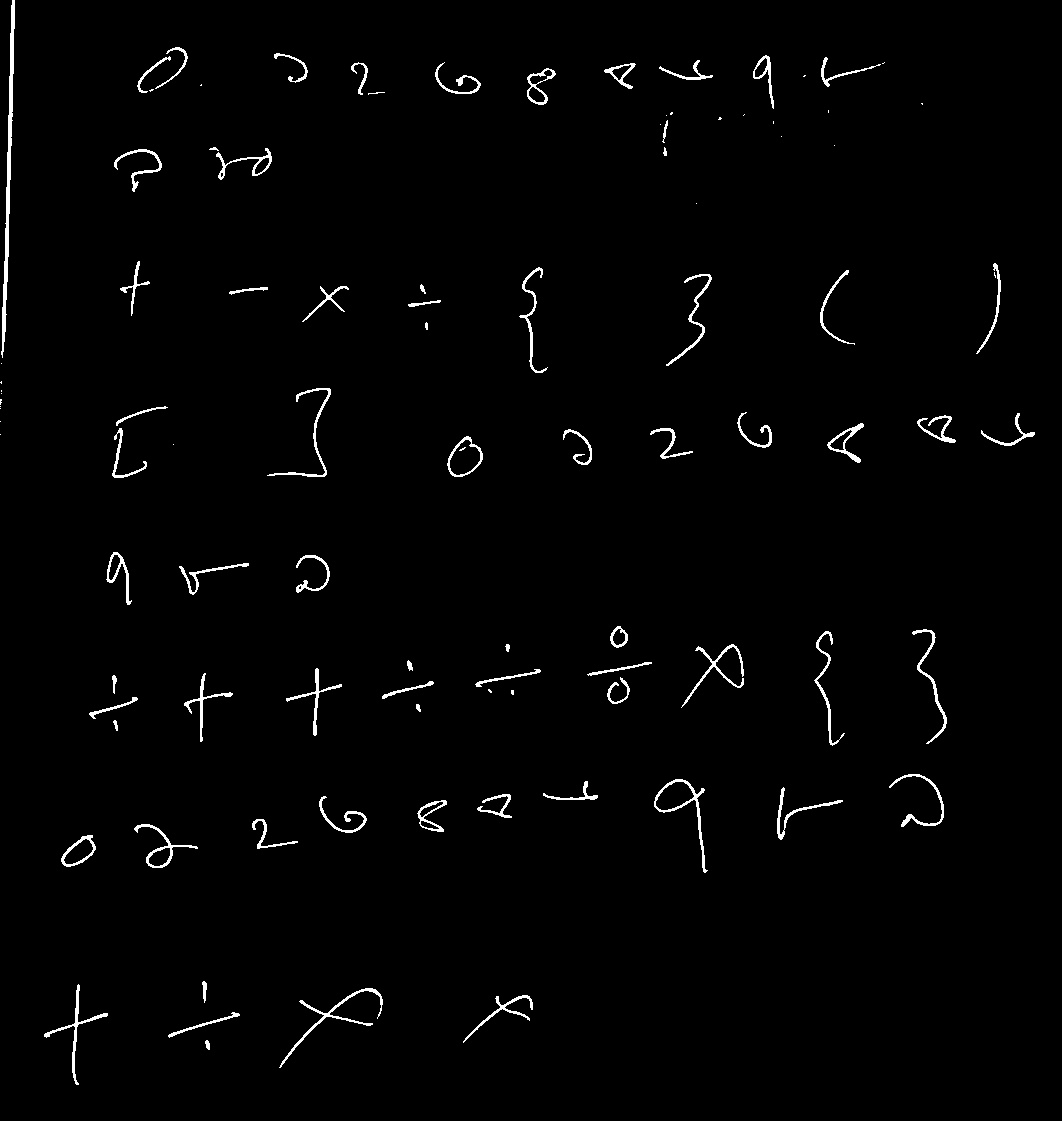 ০ ১ ২ ৩ ৪ ৫ ৬ ৭ ৮
৯ ১০
+ - × ÷ { } ( )
[ ] ০ ১ ২ ৩ ৪ ৫ ৬
৭ ৮ ৯
÷ + + ÷ ÷ ÷ × { }
০ ১ ২ ৩ ৪ ৫ ৬ ৭ ৮ ৯
+ ÷ × ×